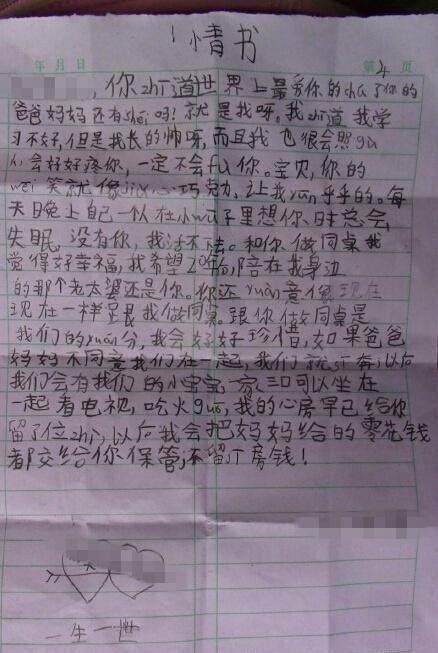 情书
年 月 日 第 4 页
,你zhī道世界上最爱你的chú了你的
爸爸妈妈还有shéi吗?就是我呀。我zhī道我学
习不好,但是我长的帅呀,而且我也很会照gù
人,会好好疼你,一定不会fù你。宝贝,你的
wēi笑就像 巧克力,让我yūn乎乎的。每
天晚上自己一个人在小wū子里想你,时总会
失眠,没有你,我活不 。和你做同桌我
觉得好幸福,我希望 年 ,陪在我身边
的那个老太婆还是你。你还yuàn意像现在
现在一样 跟我做同桌。跟你做同桌是
我们的yuán分,我会好好珍惜,如果爸爸
妈妈不同意我们在一起,我们就 奔,以后
我们会有我们的小宝宝,一家三口可以坐在
一起看电视,吃火guō,我的心房早已给你
留了位zhì,以后我会把妈妈给的零花钱
都交给你保管,不留 房钱!
一生一世